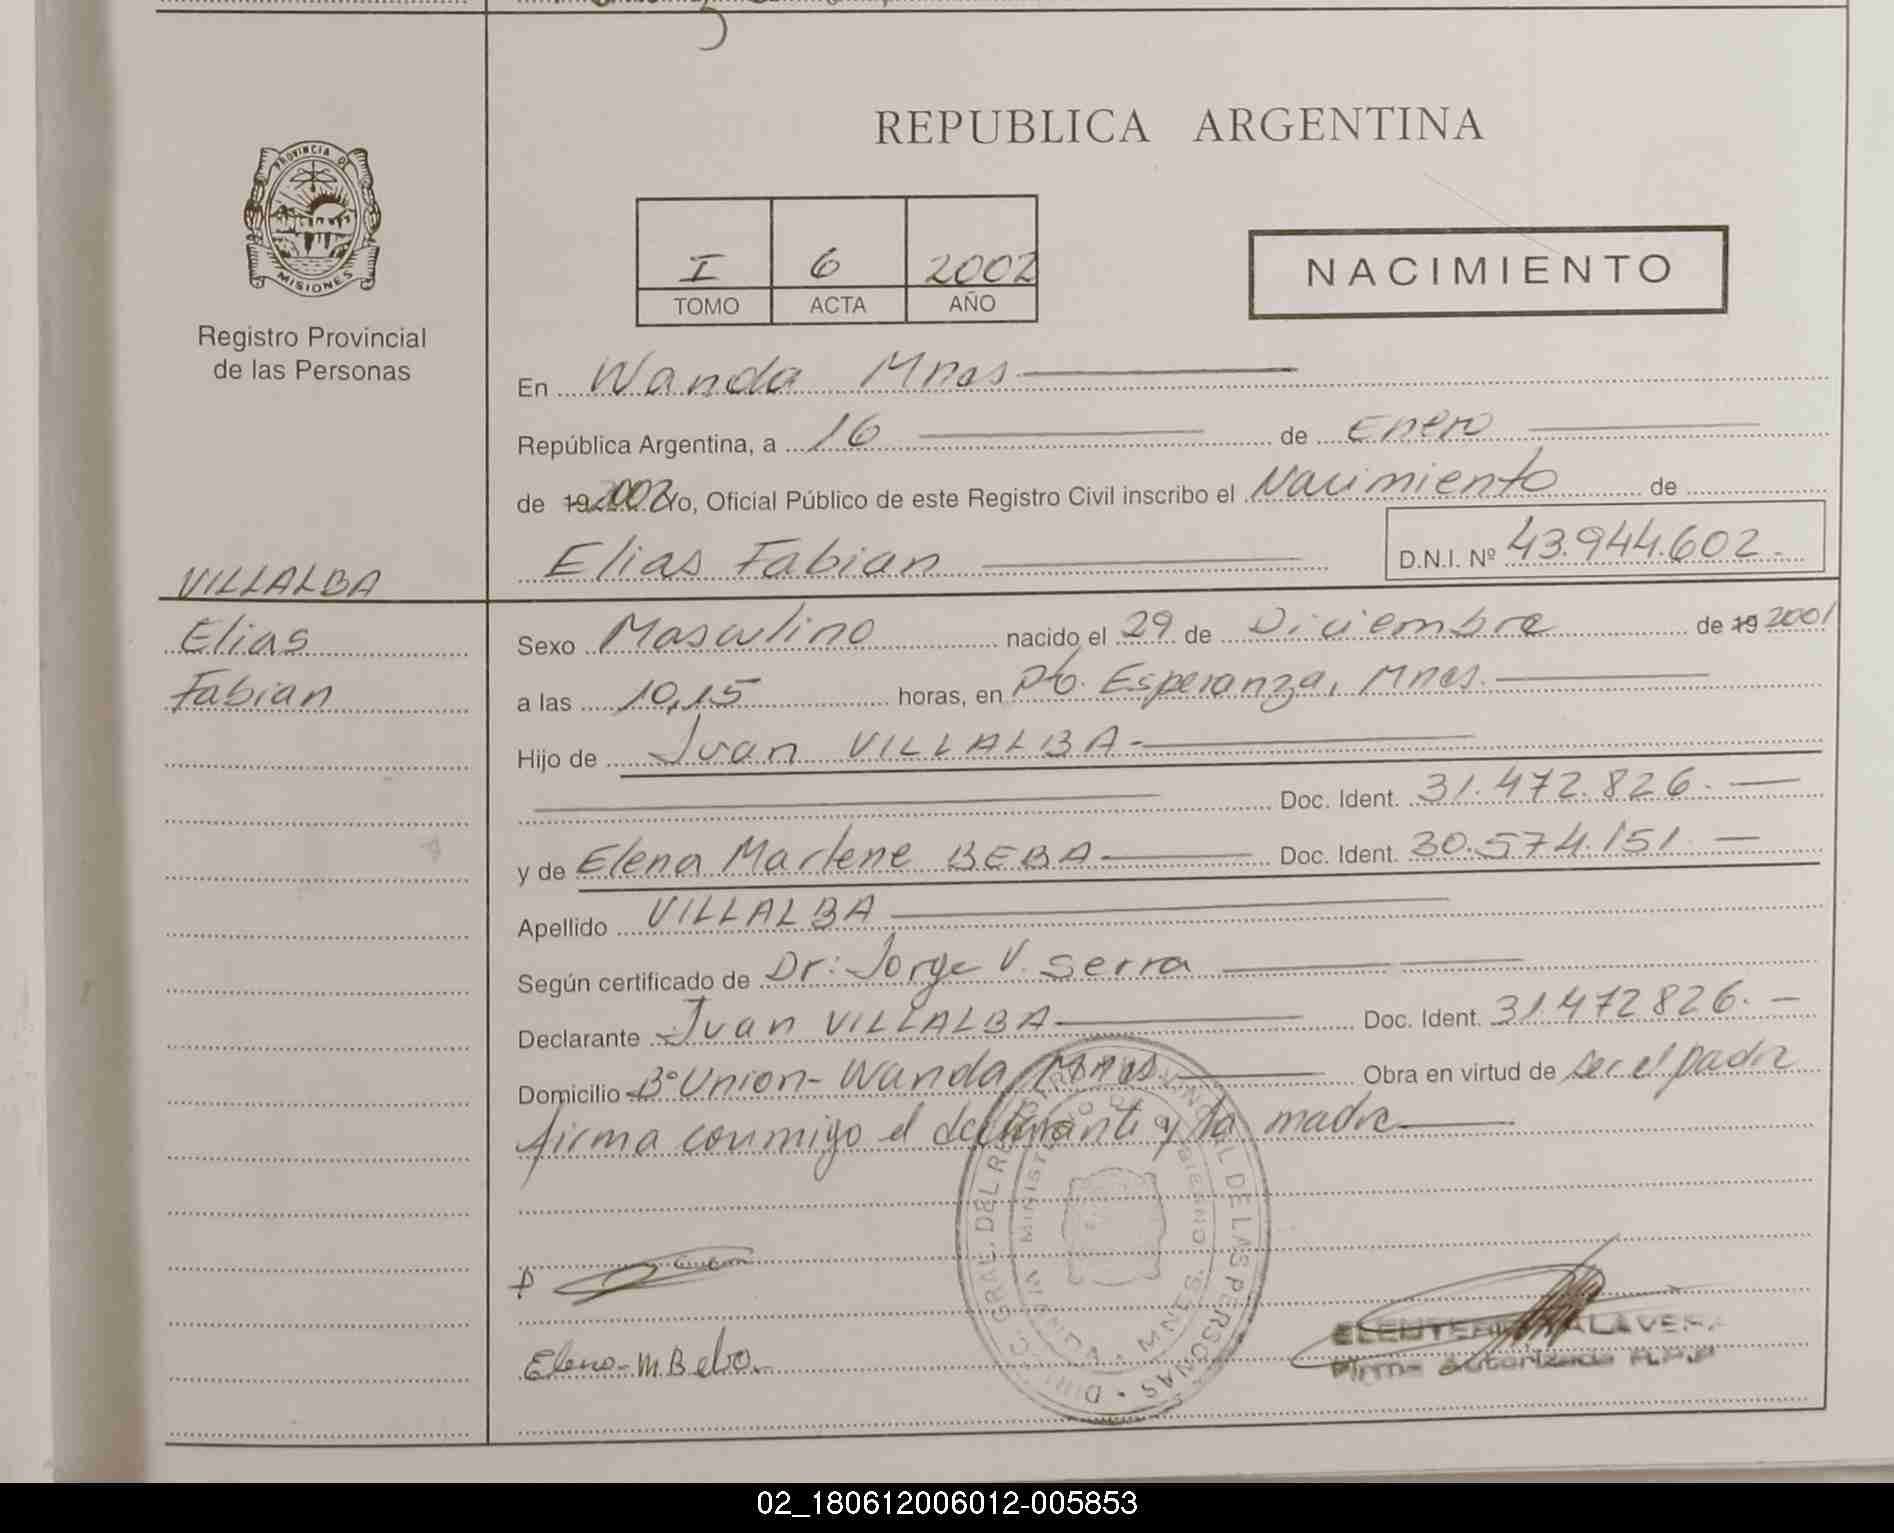 REPUBLICA ARGENTINA
PROVINCIA DE
MISIONES
Registro Provincial
de las Personas
I 6 2002
TOMO ACTA AÑO
NACIMIENTO
En Wanda Mnes
República Argentina, a 16 de Enero
de 19 2002 Yo, Oficial Público de este Registro Civil inscribo el Nacimiento de
Elias Fabian D.N.I. Nº 43.944.602.
VILLALBA
Elias
Fabian
Sexo Masculino nacido el 29 de Diciembre de 19 2001
a las 10,15 horas, en Pto. Esperanza, Mnes.
Hijo de Juan VILLALBA-
Doc. Ident. 31.472.826.
y de Elena Marlene BEBA Doc. Ident. 30.574.151
Apellido VILLALBA
Según certificado de Dr: Jorge V. Serra
Declarante Juan VILLALBA Doc. Ident. 31.472826.
Domicilio Bº Union- Wanda Mnes Obra en virtud de ser el padre
firma conmigo el declarante y la madre
Elena M Beba
ELEUTERIO TALAVERA
Firma Autorizada R.P.P
DIREC. GRAL. DEL REGISTRO PROVINCIAL DE LAS PERSONAS
MINISTERIO DE GOBIERNO
MNES.
02_180612006012-005853